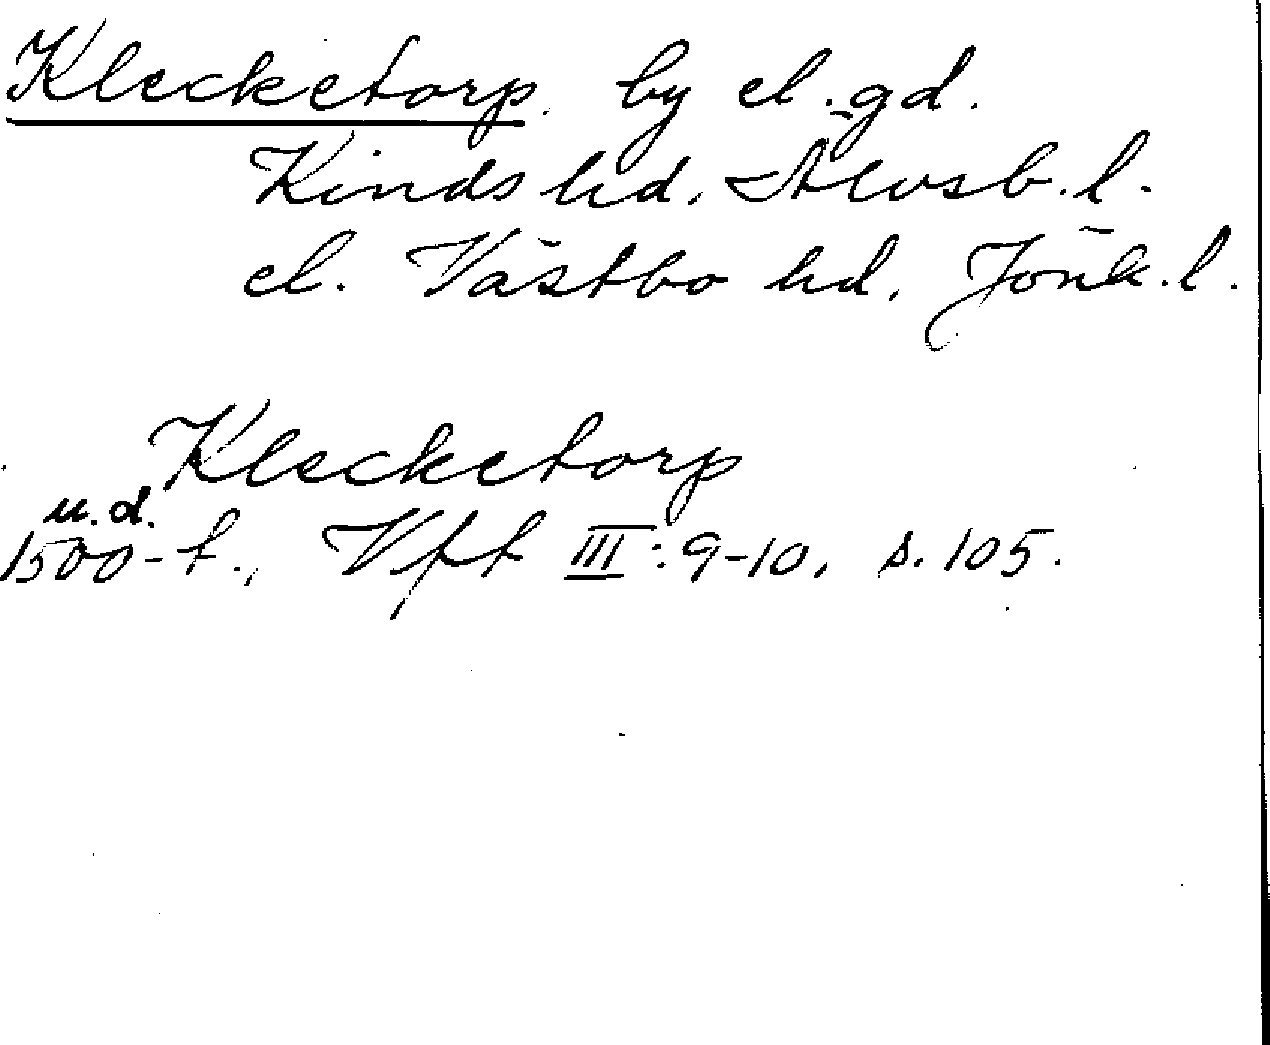 Klecketorp. by el. gd.
Kinds hd. Älvsb. l.
el. Västbo hd. Jönk. l.
Klecketorp
u.d.
1500-t., Vft III: 9-10, s. 105.